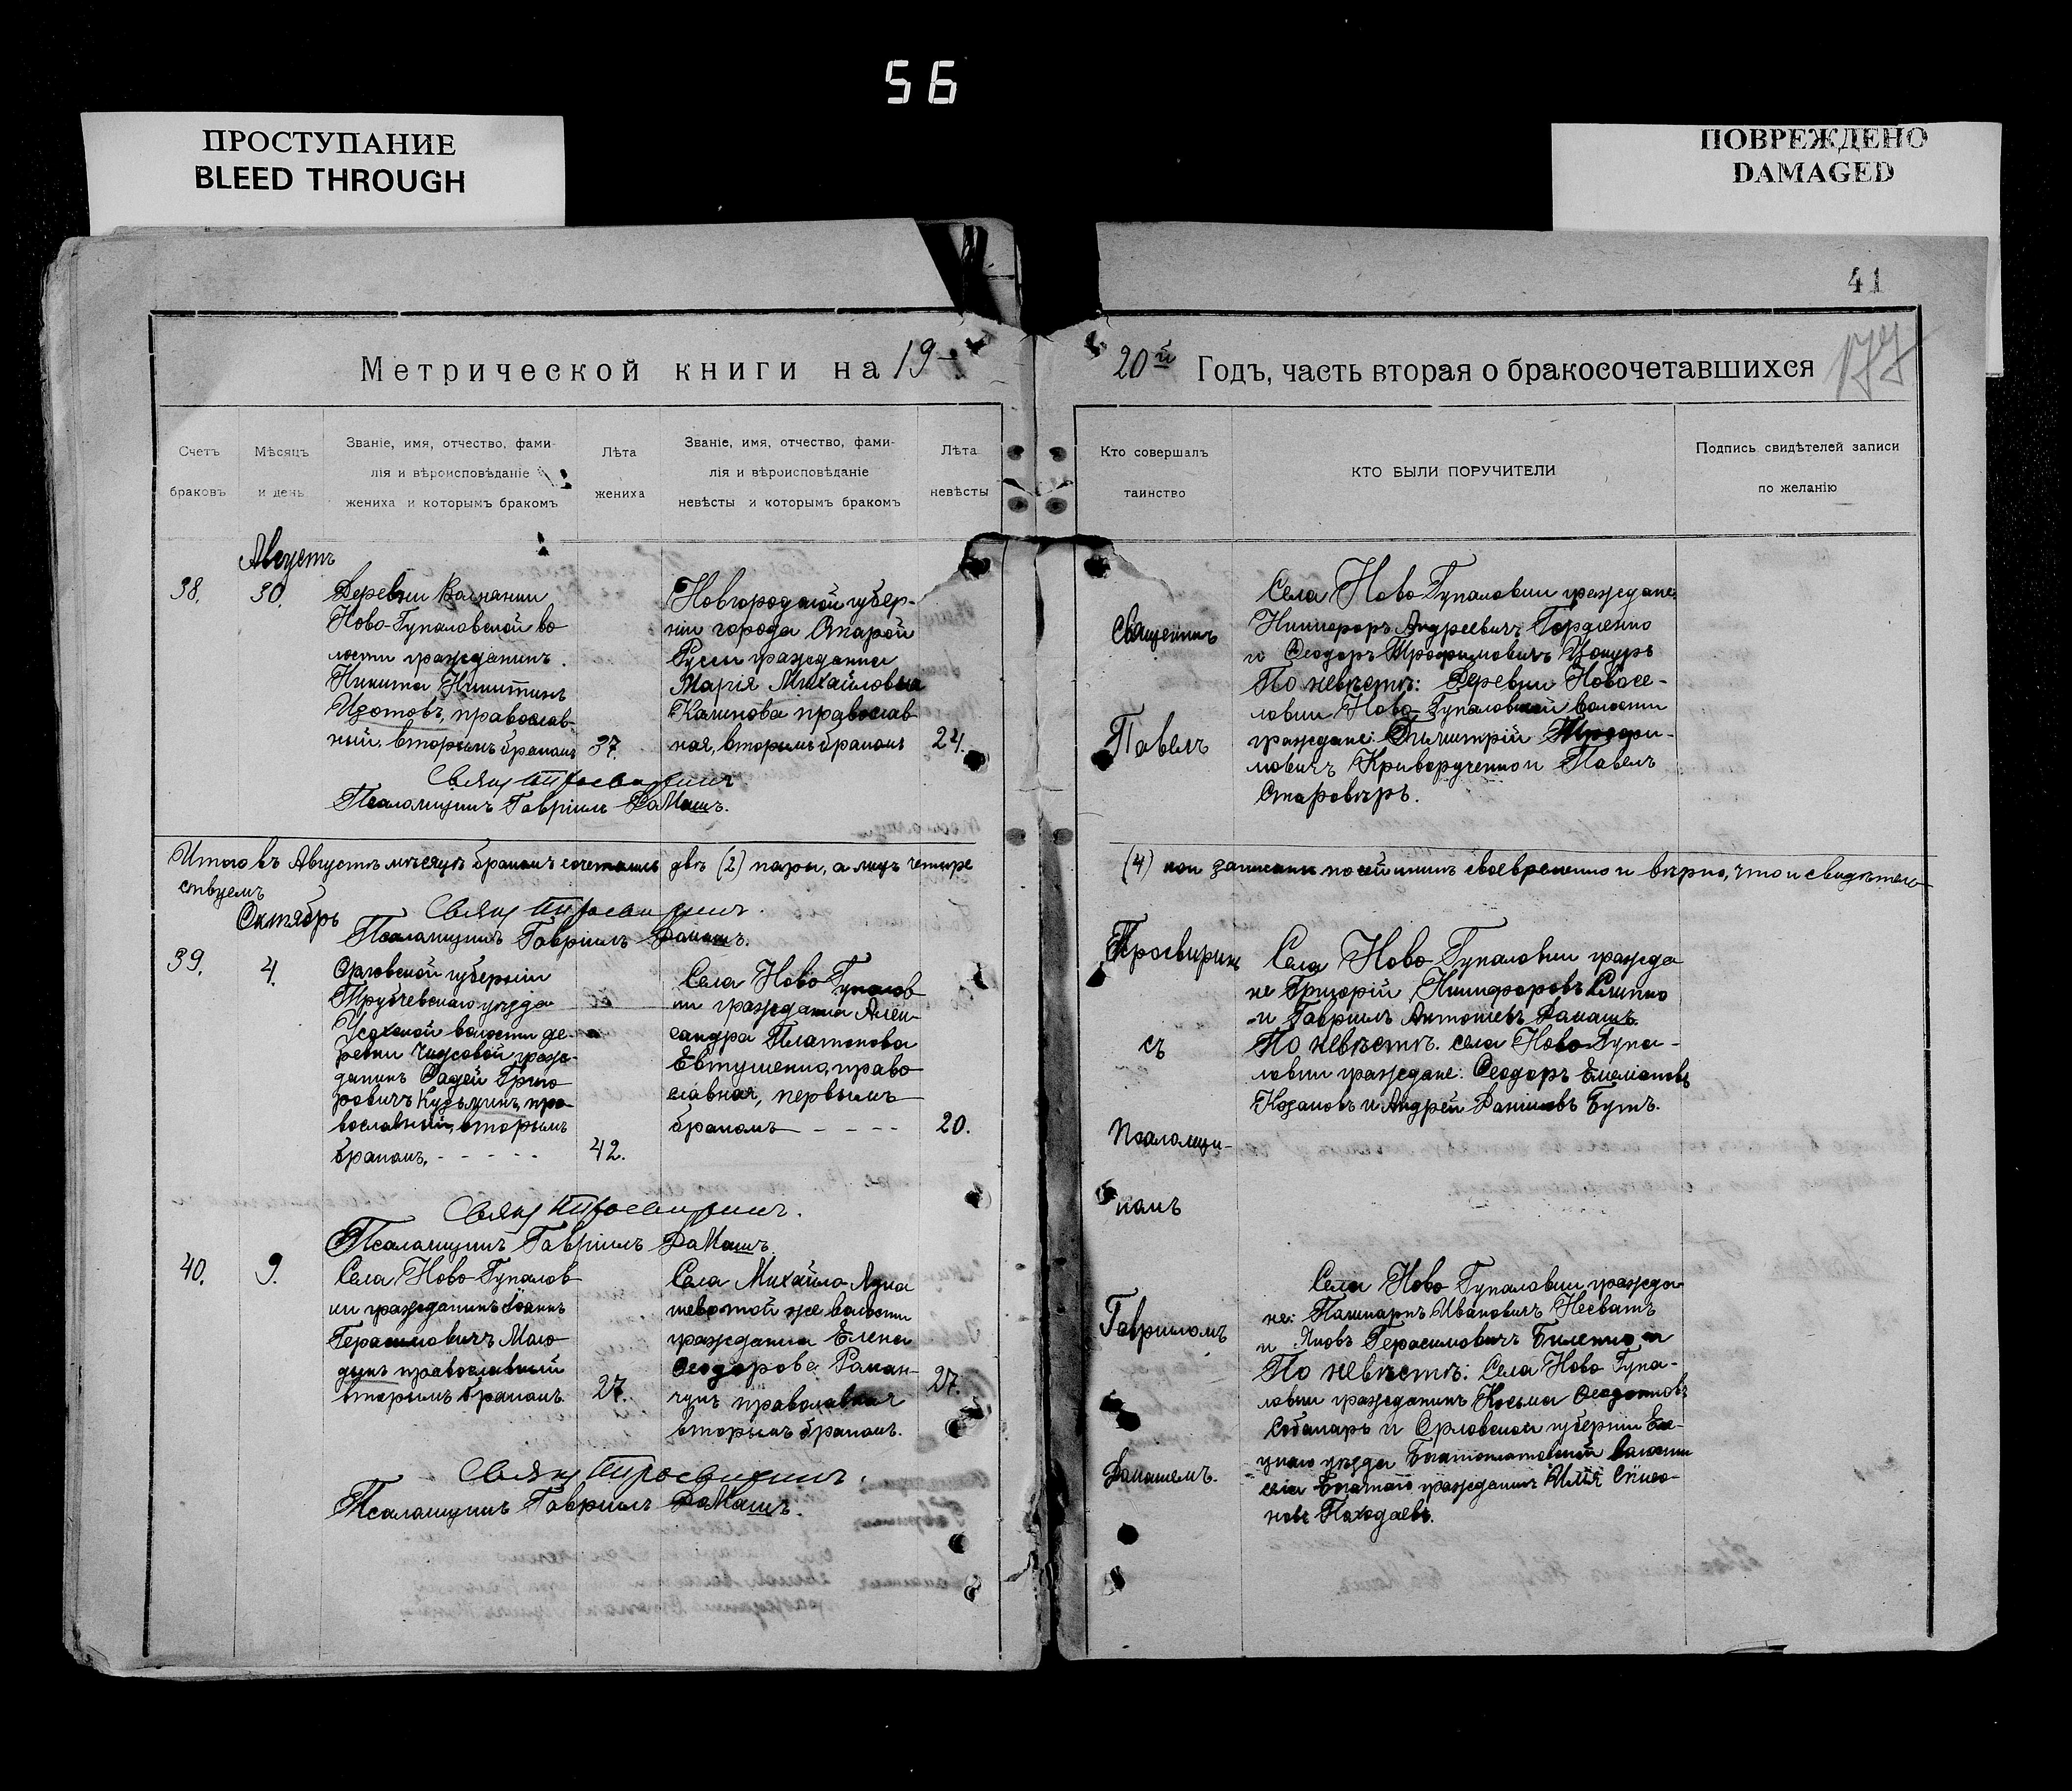 56
ПРОСТУПАНИЕ
BLEED THROUGH
ПОВРЕЖДЕНО
DAMAGED
41
Метрической книги на 19-
20й Годъ, часть вторая о бракосочетавшихся
177
Счетъ
браковъ
Мѣсяцъ
и день
Званіе, имя, отчество, фами-
лія и вѣроисповѣданіе
жениха и которымъ бракомъ
Лѣта
жениха
Званіе, имя, отчество, фами-
лія и вѣроисповѣданіе
невѣсты и которымъ бракомъ
Лѣта
невѣсты
Кто совершалъ
таинство
КТО БЫЛИ ПОРУЧИТЕЛИ
Подпись свидѣтелей записи
по желанію
Августъ
38.
30.
Деревни
Ново-Гупаловской во
лости гражданинъ
Никита Никитинъ
Изотовъ, православ-
ный, вторымъ бракомъ
37.
Новгородской губер-
ніи города Старой
Русси гражданка
Марія Михайловна
Калинова православ-
ная, вторымъ бракомъ
24.
Свящ Просвиринъ
Псаломщикъ Гавріилъ Замашъ.
Села Ново Гупаловки граждане:
Никифоръ Андреевичъ Гордіенко
и Ѳеодоръ Трофимовичъ Цокуръ
По невѣстѣ: Деревни Новосе-
ловки Ново-Гупаловской волости
граждане: Димитрій Трофи-
мовичъ Криворученко и Павелъ
Старовѣръ.
Итого въ Августѣ мѣсяцѣ бракомъ сочетались двѣ (2) пары, а лицъ четыре
(4) кои записаны по сей книгѣ своевременно и вѣрно, что и свидѣтель-
ствуемъ
Свящ Просвиринъ.
Псаломщикъ Гавріилъ Замашъ.
Октябрь
39.
4.
Орловской губерніи
Трубчевскаго уѣзда
волости де-
ревни гражд-
данинъ Фадей Григо
ровичъ Кузьминъ, пра-
вославный, вторымъ
бракомъ. - - - - -
42.
Села Ново Гупалов
ки гражданка Алек-
сандра Платонова
Евтушенко, право
славная, первымъ
бракомъ - - - -
20.
Свящ Просвиринъ.
Псаломщикъ Гавріилъ Замашъ.
Села Ново Гупаловки гражда
не Григорій Никифоровъ Слипко
и Гавріилъ Антоніевъ Замашъ.
По невѣстѣ. села Ново Гупа-
ловки граждане: Ѳеодоръ Емеліановъ
Козаковъ и Андрей Даніиловъ Бутъ.
40.
9.
Села Ново Гупалов
ки гражданинъ Іоаннъ
Герасимовичъ
православный
вторымъ бракомъ.
27.
Села Михайло Лука
шево той же волости
гражданка Елена
Ѳеодорова Роман-
чукъ православная
вторымъ бракомъ.
27.
Свящ Просвиринъ.
Псаломщикъ Гавріилъ Замашъ.
Села Ново Гупаловки гражда-
не: Ивановичъ Несватъ
и Яковъ Герасимовичъ Биленко
По невѣстѣ: Села Ново Гупа-
ловки гражданинъ Косьма Ѳеодотовъ
Собакарь и Орловской губерніи Ел-
цкаго уѣзда волости
села гражданинъ Илія
новъ Походаевъ.
Священникъ
Павелъ
Просвиринъ
съ
Псаломщи-
комъ
Гавриломъ
Замашемъ.